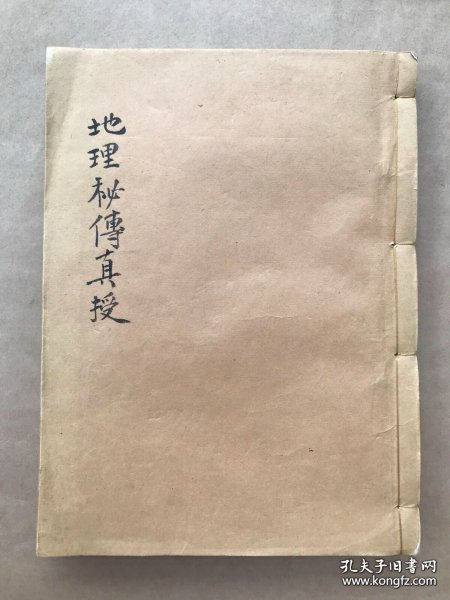 地理秘傳真授
孔夫子旧书网
www.kongfz.com